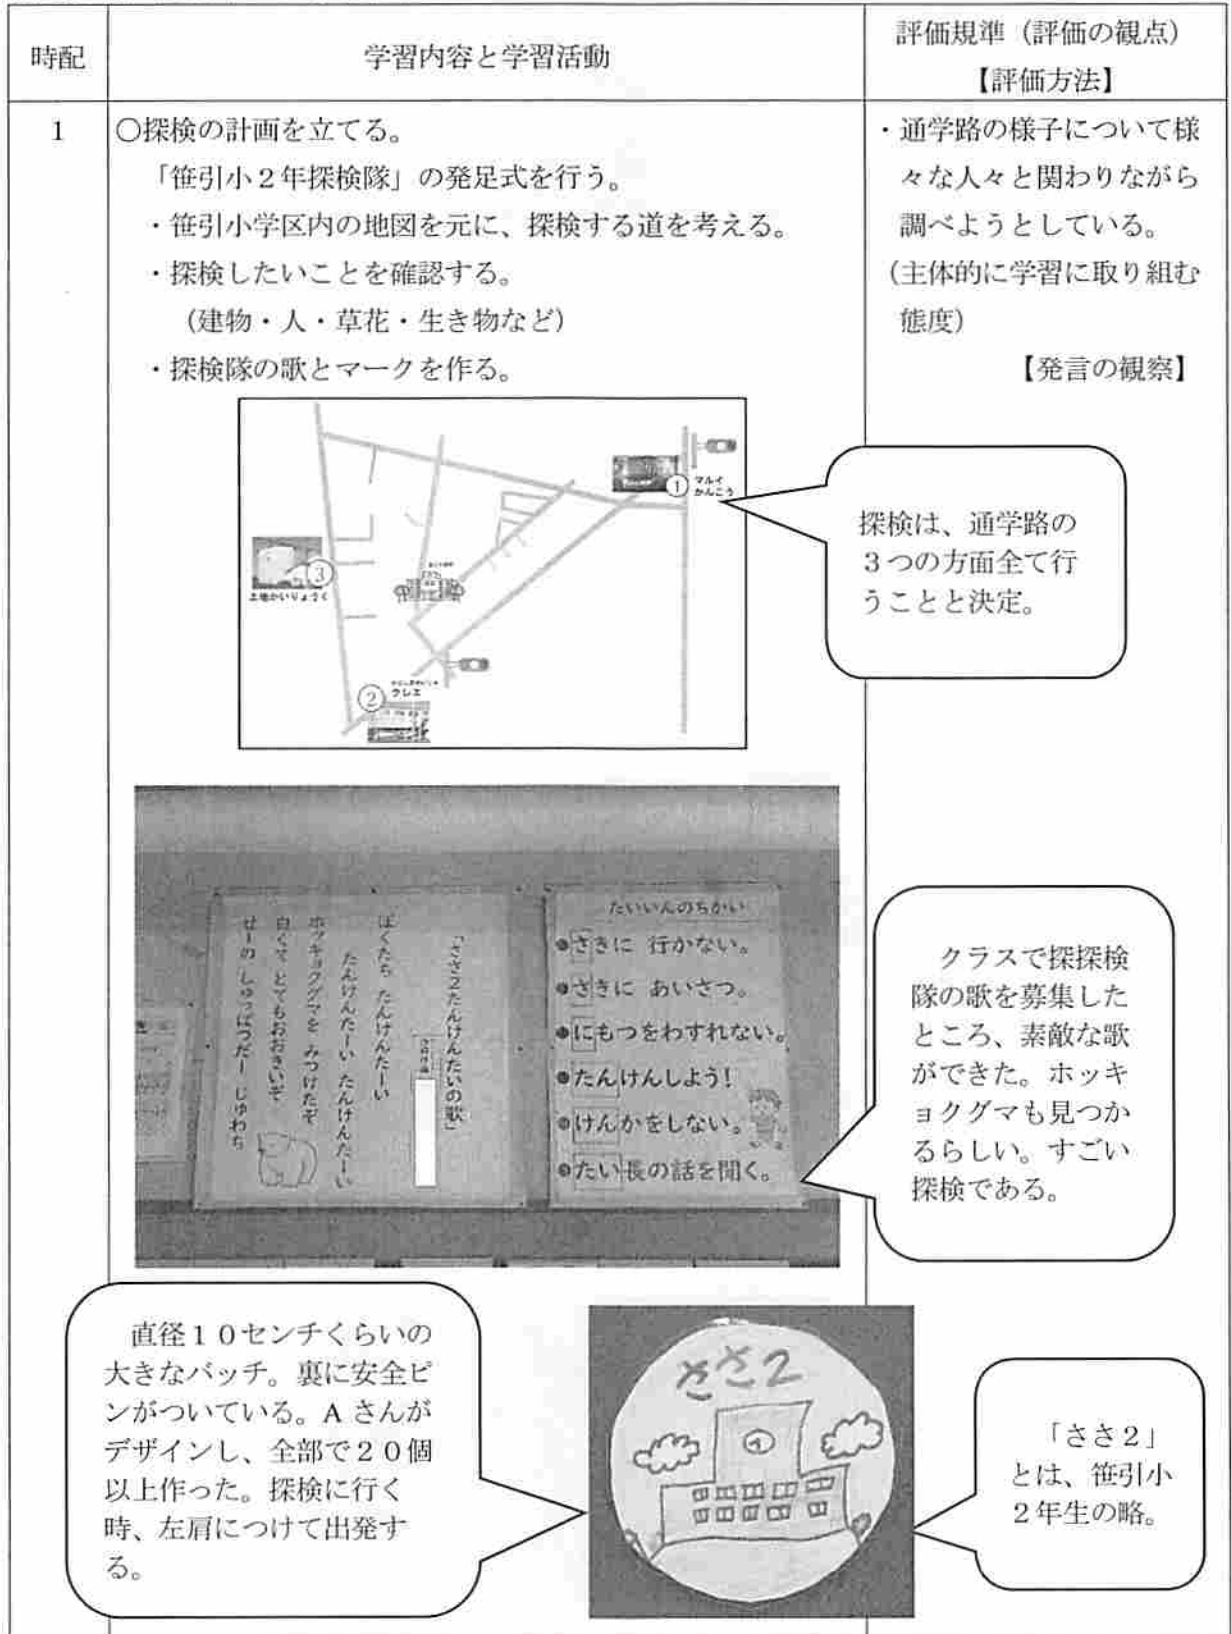 時配
学習内容と学習活動
評価規準（評価の観点）
【評価方法】
1
〇探検の計画を立てる。
「笹引小２年探検隊」の発足式を行う。
・笹引小学区内の地図を元に、探検する道を考える。
・探検したいことを確認する。
（建物・人・草花・生き物など）
・探検隊の歌とマークを作る。
・通学路の様子について様
々な人々と関わりながら
調べようとしている。
（主体的に学習に取り組む
態度）
【発言の観察】
①
マルイ
かんこう
③
土地かいりょうく
②
クレエ
探検は、通学路の
３つの方面全て行
うことと決定。
「ささ２たんけんたいの歌」
ぼくたち たんけんたーい
たんけんたーい たんけんたーい
ホッキョクグマを みつけたぞ
白くて とてもおおきいぞ
せーの しゅっぱつだー しゅわち
たいいんのちかい
●さきに 行かない。
●さきに あいさつ。
●にもつをわすれない。
●たんけんしよう！
●けんかをしない。
●たい長の話を聞く。
クラスで探探検
隊の歌を募集した
ところ、素敵な歌
ができた。ホッキ
ョクグマも見つか
るらしい。すごい
探検である。
直径１０センチくらいの
大きなバッチ。裏に安全ピ
ンがついている。A さんが
デザインし、全部で２０個
以上作った。探検に行く
時、左肩につけて出発す
る。
ささ2
「ささ２」
とは、笹引小
２年生の略。